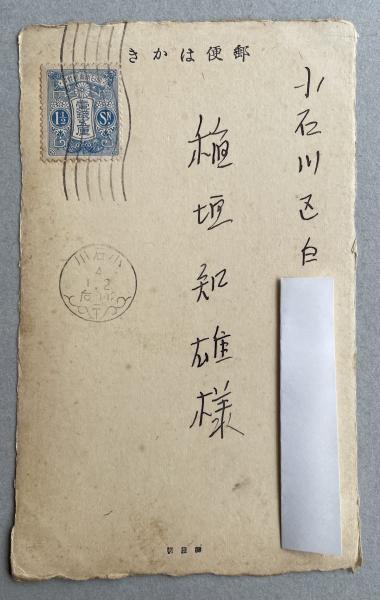 郵便はかき
小石川区白
稲垣知雄様
1½ SN
小石川
4
1.2